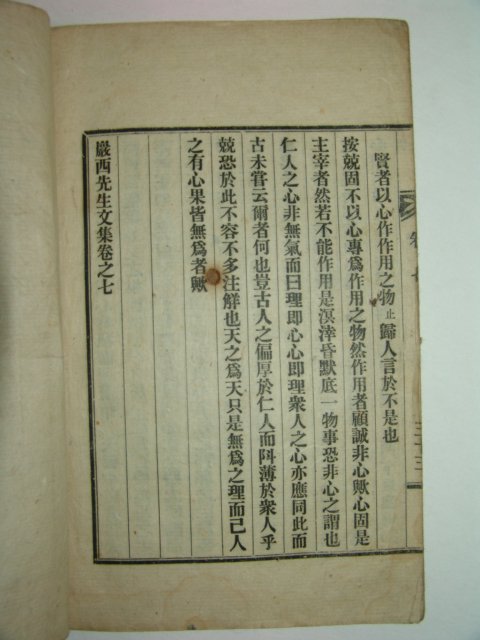 賢者以心作作用之物止歸人言於不是也
按兢固不以心專爲作用之物然作用者顧誠非心歟心固是
主宰者然若不能作用是溟涬昏默底一物事恐非心之謂也
仁人之心非無氣而曰理即心心即理衆人之心亦應同此而
古未嘗云爾者何也豈古人之偏厚於仁人而阧薄於衆人乎
兢恐於此不容不多注解也天之爲天只是無爲之理而已人
之有心果皆無爲者歟
嚴西先生文集卷之七